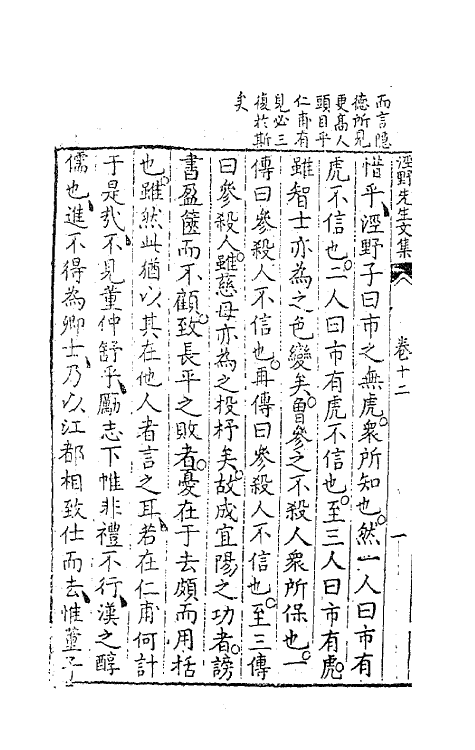 涇野先生文集
卷十二
一
惜乎涇野子曰市之無虎衆所知也然一人曰市有
虎不信也二人曰市有虎不信也至三人曰市有虎
雖智士亦為之色變矣曾參之不殺人衆所保也一
傳曰參殺人不信也再傳曰參殺人不信也至三傳
曰參殺人雖慈母亦為之投杼矣故成宜陽之功者謗
書盈篋而不顧致長平之敗者憂在于去頗而用括
也雖然此猶以其在他人者言之耳若在仁甫何計
于是哉不見董仲舒乎勵志下帷非禮不行漢之醇
儒也進不得為卿士乃以江都相致仕而去惟董子
而言隠
德所見
更髙人
頭目乎
仁甫有
見必三
復於斯
矣